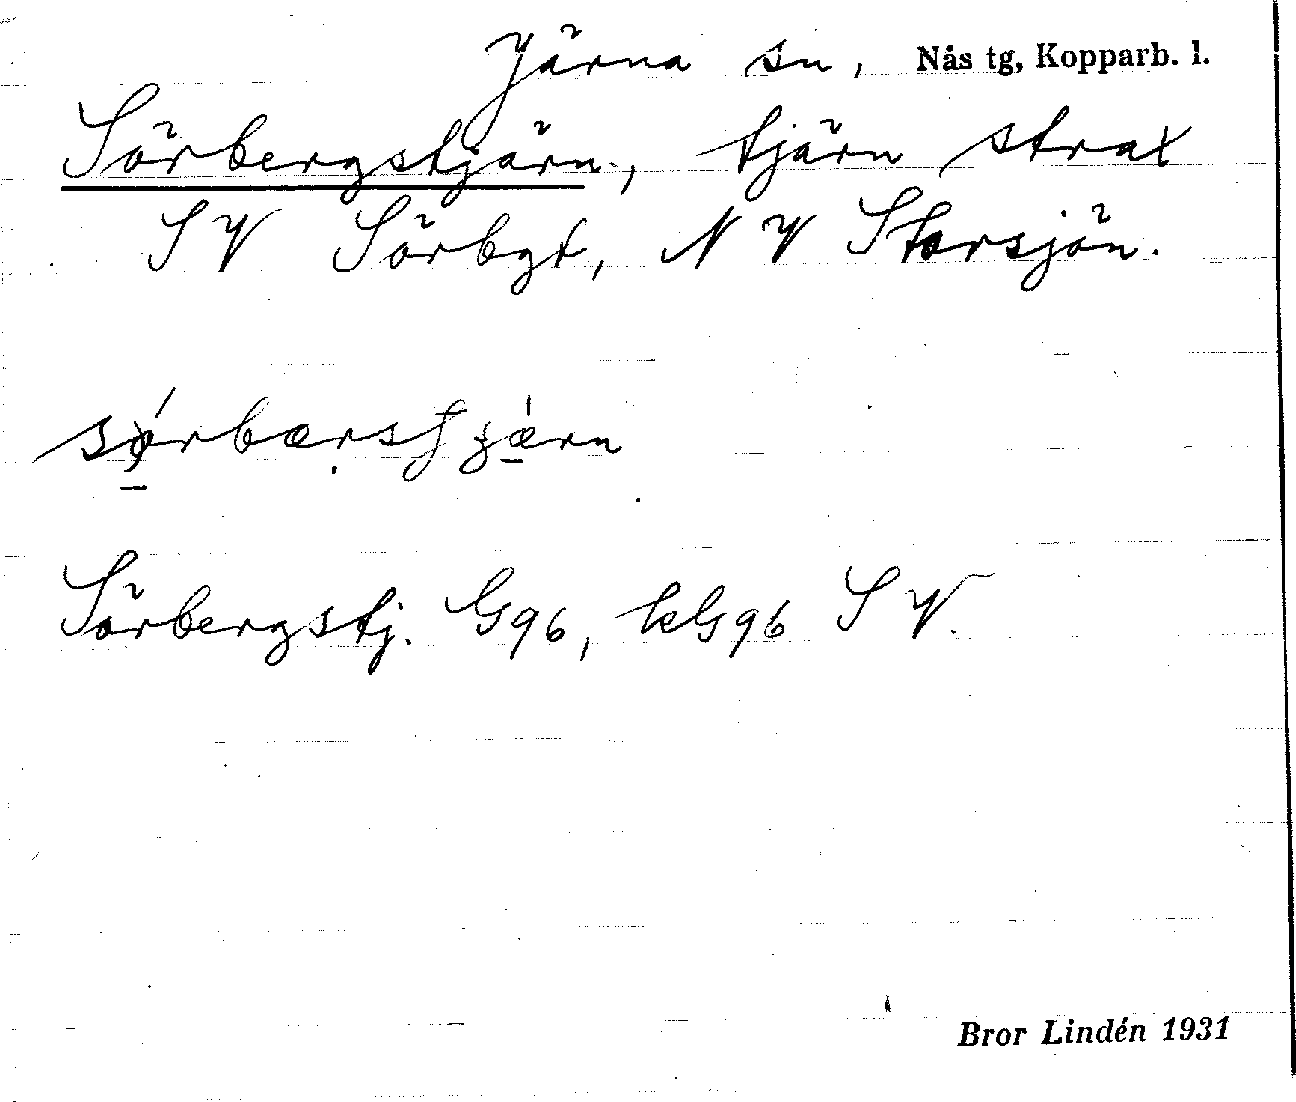 Järna sn, Nås tg, Kopparb. l.
Sörbergstjärn, tjärn strax
SV Sörbgt, NV Storsjön.
Sörbergstj. G96, kG96 SV.
Bror Lindén 1931